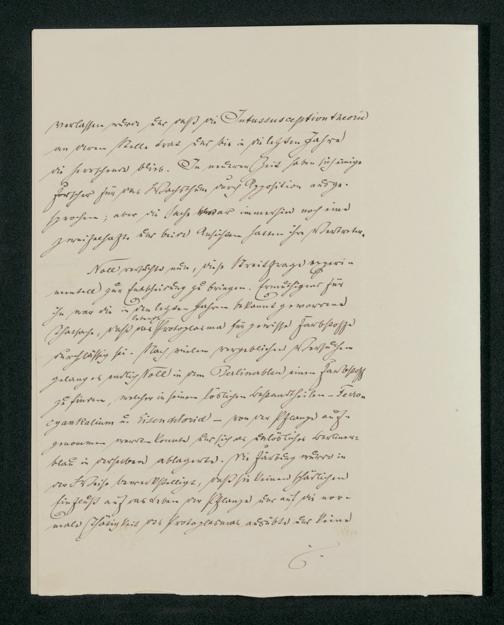 verlassen wurde und daß die Intussusceptionstheorie
an deren Stelle trat und bis in die letzten Jahre
die herrschende blieb. In neuerer Zeit haben sich einige
Forscher für das Wachsthum durch Apposition ausge-
sprochen; aber die Sache war immerhin noch eine
zweifelhafte und beide Ansichten hatten ihre Vertreter.
Noll versuchte nun, diese Streitfrage experi-
mentell zur Entscheidung zu bringen. Ermuthigend für
ihn war die in den letzten Jahren bekannt gewordene
Thatsache, daß das lebende Protoplasma für gewisse Farbstoffe
durchlässig sei. Nach vielen vergeblichen Versuchen
gelang es endlich Noll in dem Berlinerblau einen Farbstoff
zu finden, welcher in seinen löslichen Bestandtheilen – Ferro-
cyankalium u. Eisenchlorid – von der Pflanze auf-
genommen werden konnte und sich als unlösliches Berliner-
blau in derselben ablagerte. Die Färbung wurde in
der Weise bewerkstelligt, daß sie keinen schädlichen
Einfluß auf das Leben der Pflanze und auf die nor-
male Thätigkeit des Protoplasmas ausübte und keine